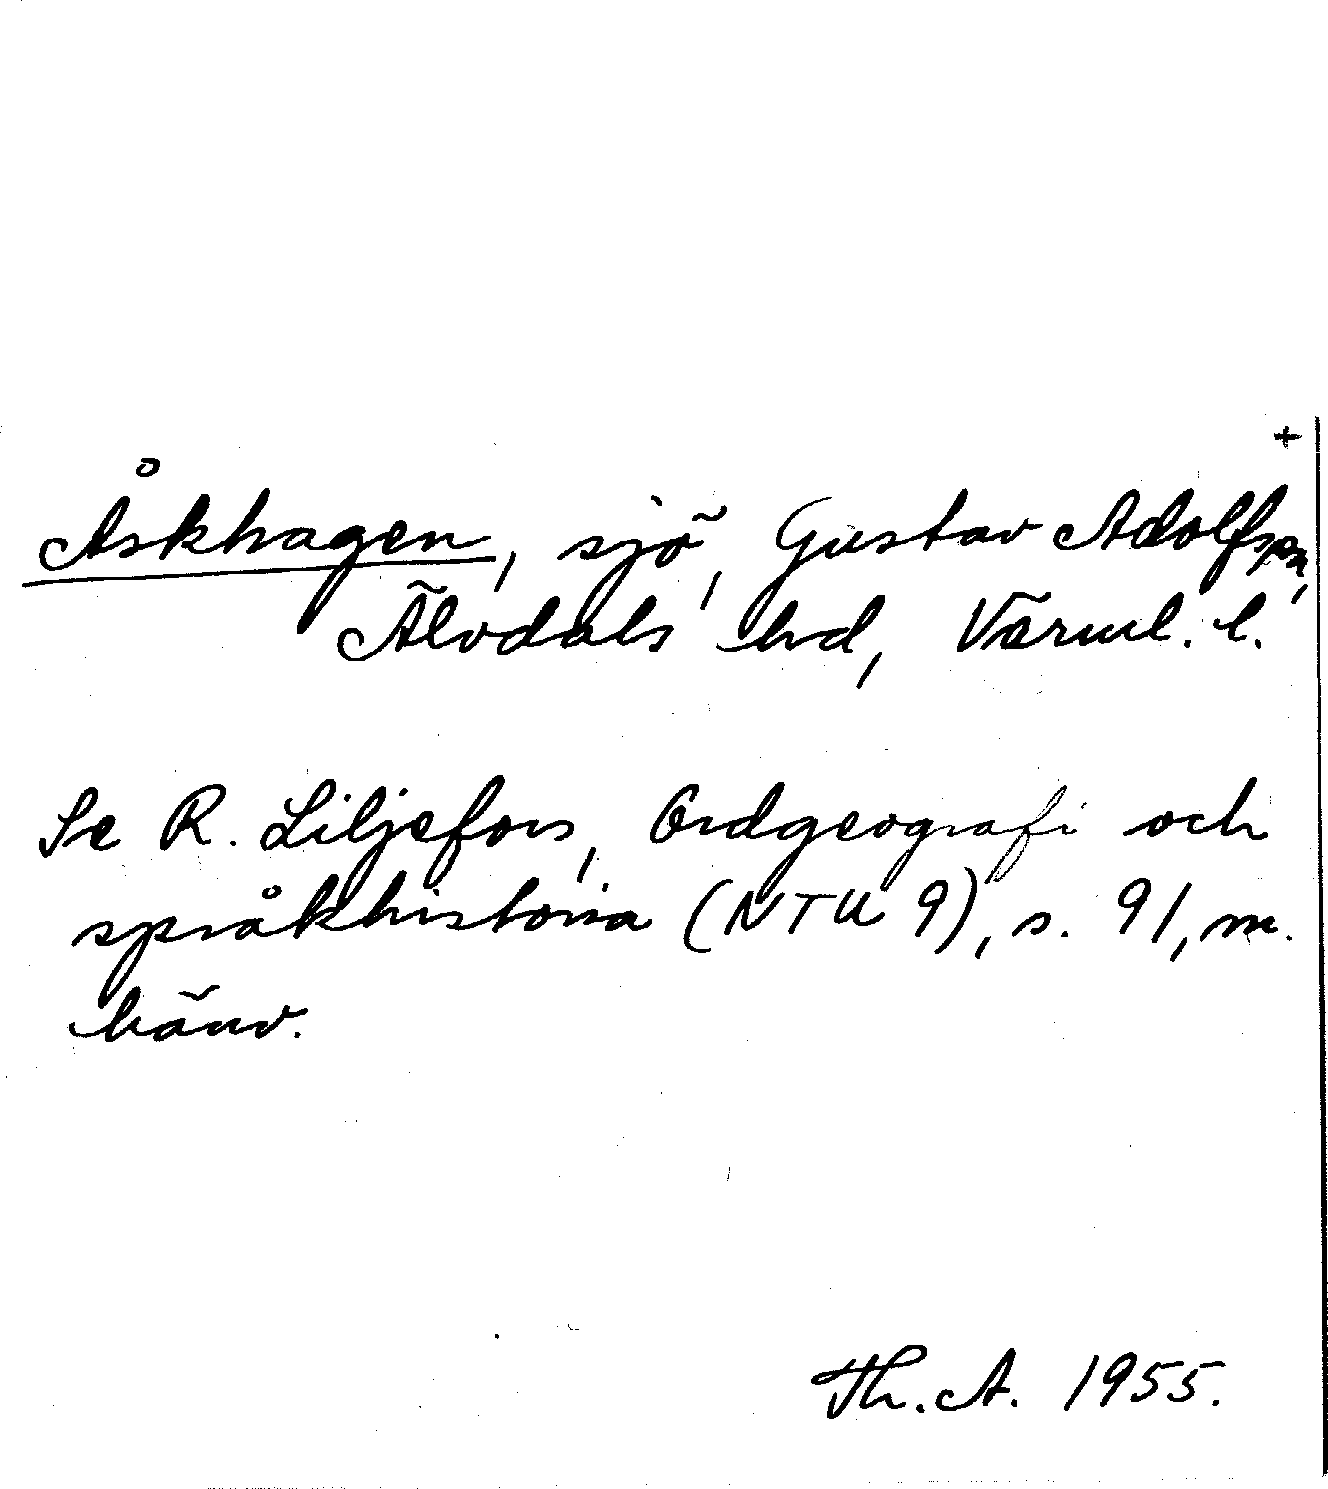 +
Åskhagen, sjö, Gustav Adolfs sn,
Älvdals hd, Värml. l.
Se R. Liljefors, Ordgeografi och
språkhistoria (NTU 9), s. 91, m.
hänv.
Th. A. 1955.